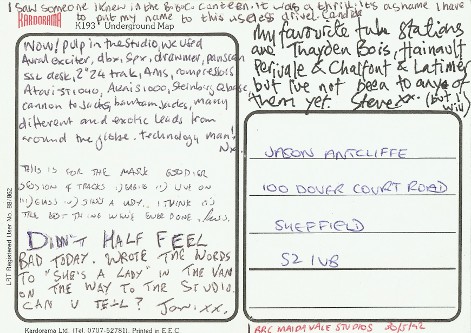 I saw someone I knew in the B.B.C. canteen. it was a thrill. its a shame I have
to put my name to this useless drivel. Candida
KARDORAMA
K193 Underground Map
Now! Pulp in the studio, we used
Aural exciter, dbx, spx, drawmer, panscan
SSL desk, 2" 24 trak, AMS, compressors
Atari st 1040, Akai s1000, Steinberg Cubase,
cannon to jacks, bantam jacks, many
different and exotic leads from
around the globe. technology man!
Nx.
THIS IS FOR THE MARK GOODIER
SESSION 4 TRACKS
SHE'S A LADY. I THINK IT'S
THE BEST THING WE'VE EVER DONE.
DIDN'T HALF FEEL
BAD TODAY. WROTE THE WORDS
TO "SHE'S A LADY" IN THE VAN
ON THE WAY TO THE STUDIO.
CAN U TELL? Jarvis xx.
My favourite tube stations
are Thayden Bois, Hainault
Perivale & Chalfont & Latimer
but I've not been to any of
them yet. Steve xx. (but I
will)
JASON ANTCLIFFE
100 DOVER COURT ROAD
SHEFFIELD
S2 1UB
LRT Registered User No. 88/862
Kardorama Ltd. (Tel. 0707-52781). Printed in E.E.C
BBC MAIDA VALE STUDIOS 30/5/92